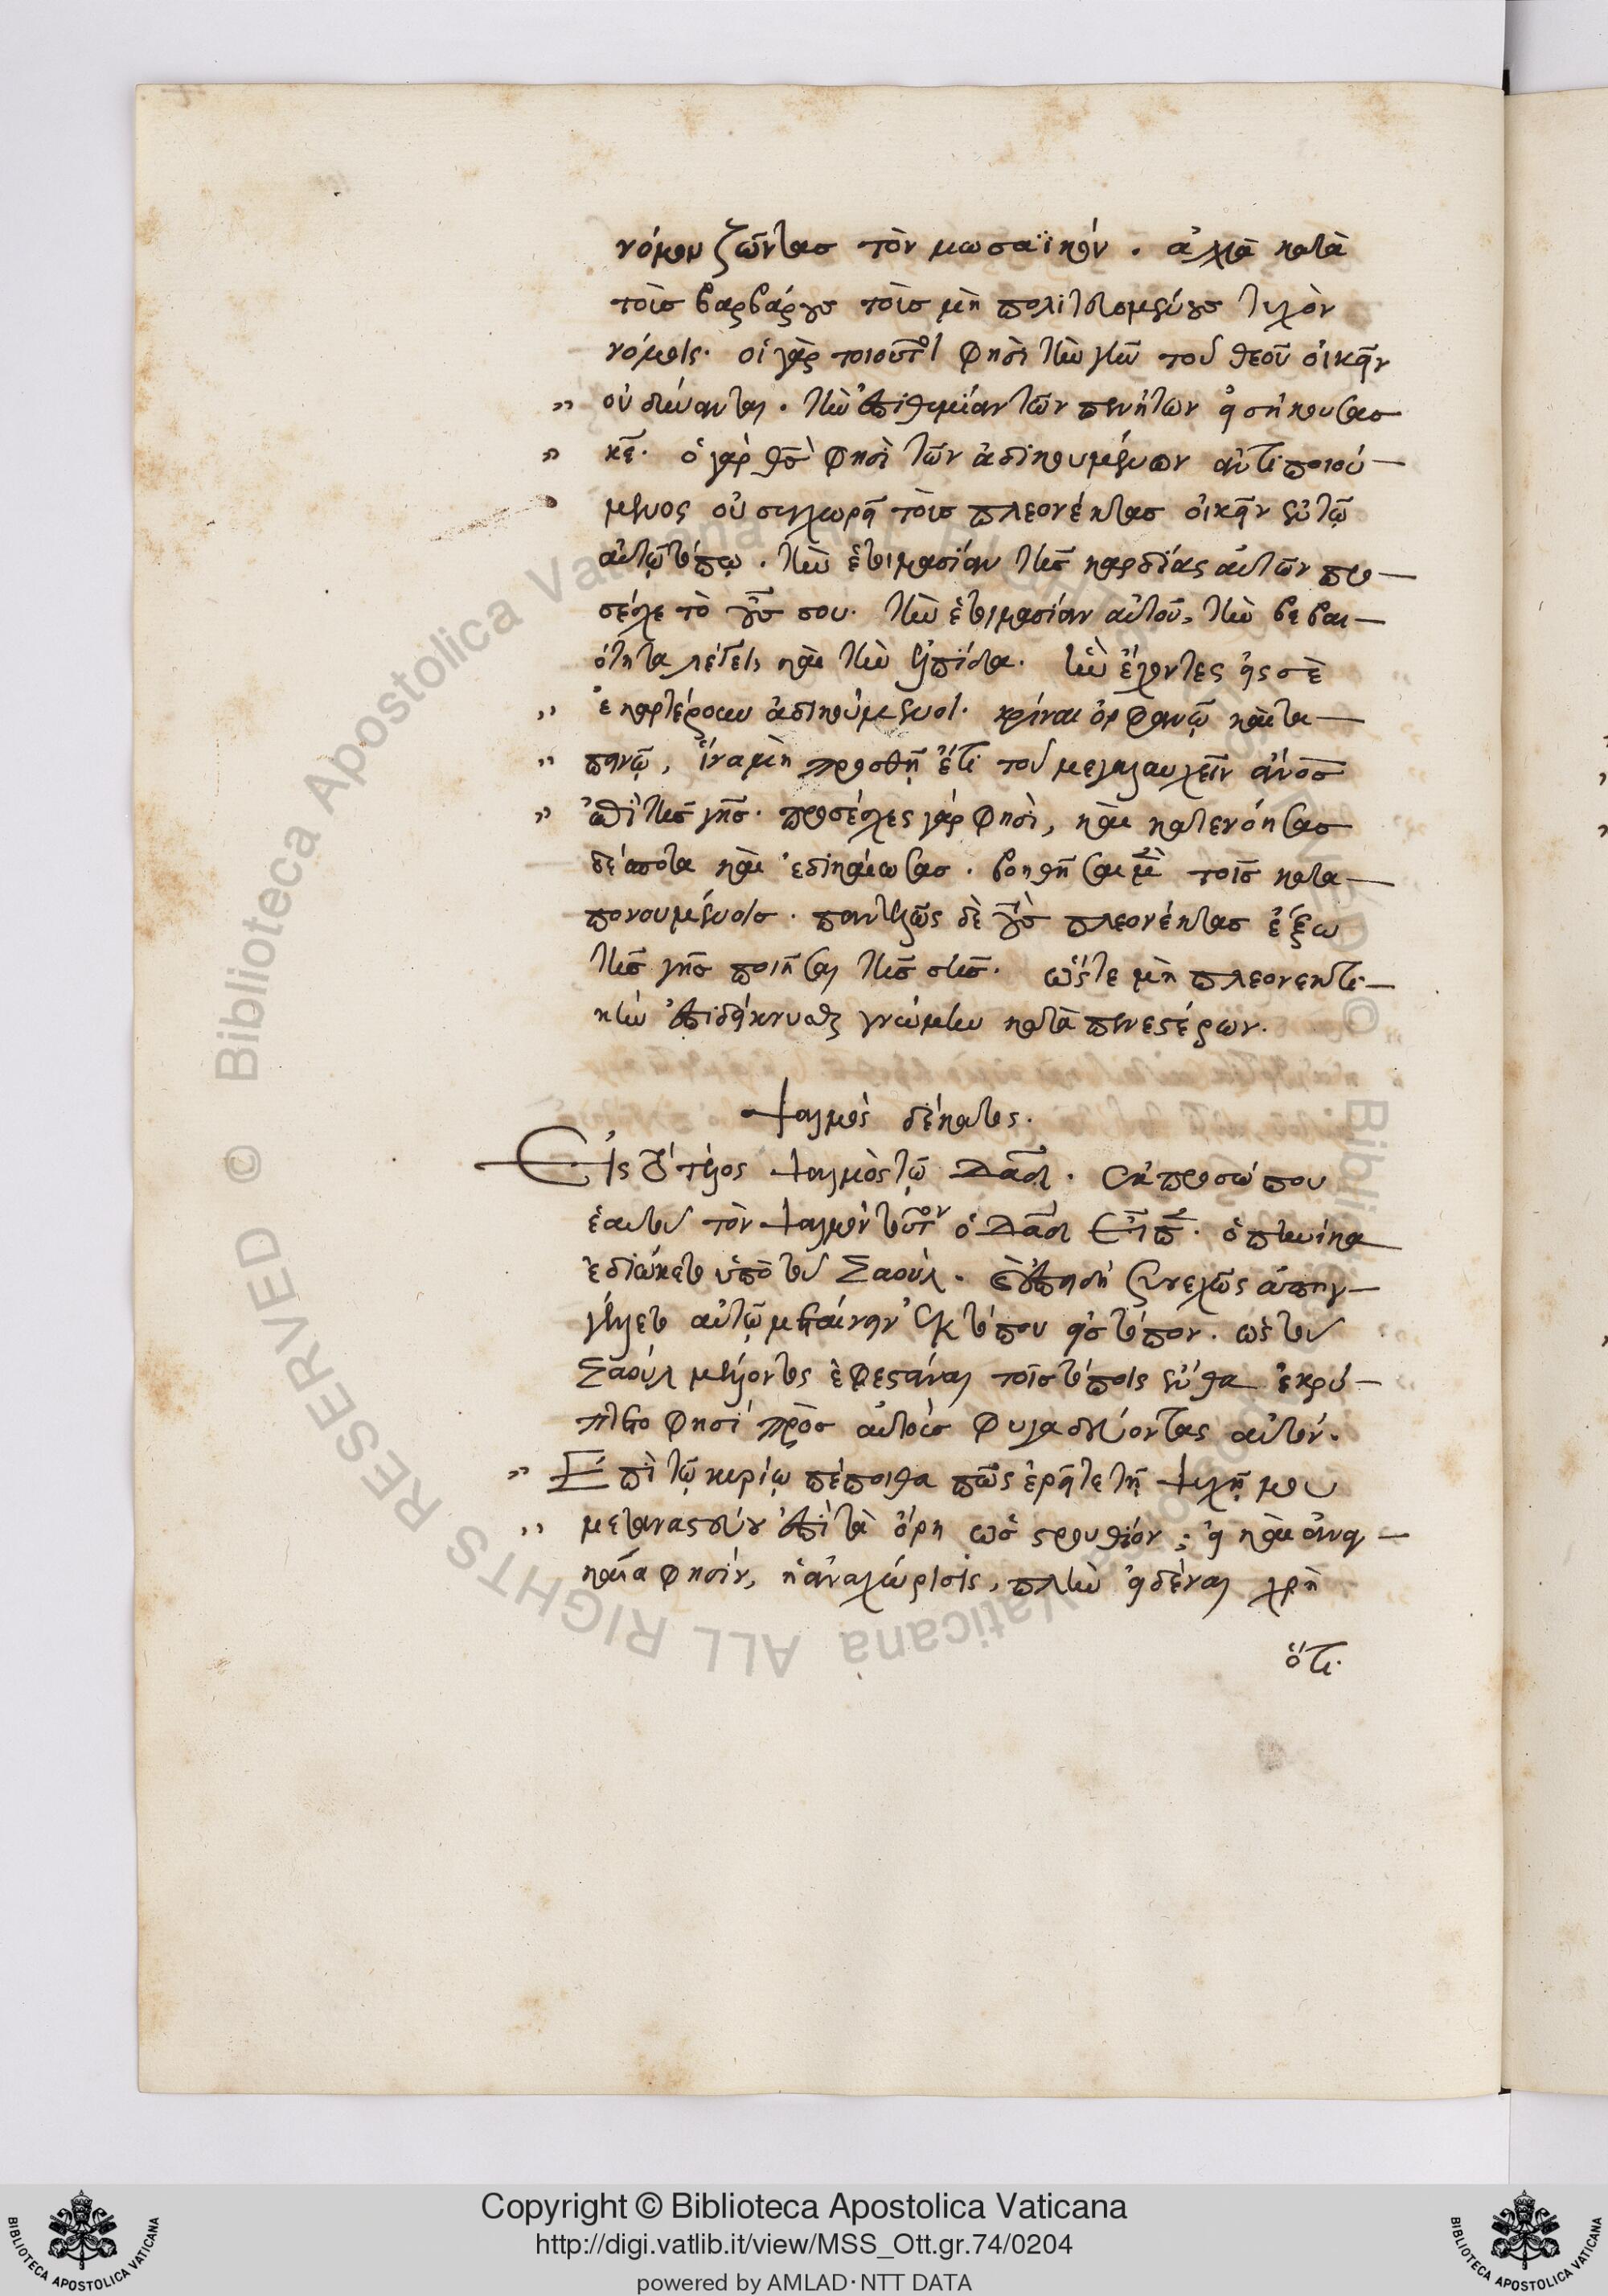 νόμον ζῶντασ τὸν μωσαϊκόν . ἀλλὰ κατὰ
τοὺσ βαρβάρουσ τοὺσ μὴ πολιτευομένουσ τυχὸν
νόμοις. οἱ γὰρ τοιοῦτοι φησὶ τὴν γῆν τοῦ θεοῦ οἰκεῖν
" οὐ δύνανται . τὴν ἐπιθυμίαν τῶν πενήτων εἰσήκουσασ
" κε. ὁ γὰρ θσ φησὶ τῶν ἀδικουμένων ἀντιποιού-
μενος οὐ συγχωρεῖ τοὺσ πλεονέκτασ οἰκεῖν ἐν τῷ
αὐτῷ τόπῳ . τὴν ἑτοιμασίαν τῆσ καρδίας αὐτῶν προ-
σέσχε τὸ οὖσ σου. τὴν ἑτοιμασίαν αὐτοῦ, τὴν βεβαι-
ότητα λέγει, καὶ τὴν ἐλπίδα. ἣν ἔχοντες εἰς σὲ
" ἐκαρτέρουν ἀδικούμενοι. κρίναι ὀρφανῷ καὶ τα-
" πεινῷ, ἵνα μὴ προσθῇ ἔτι τοῦ μεγαλαυχεῖν ἀνοσ
" ἐπὶ τῆσ γῆσ. προσέσχες γάρ φησὶ, καὶ κατενόησασ
δέσποτα καὶ ἐδικαίωσασ . βοηθῆσαι μὲν τοῖσ κατα-
πονουμένοισ . παντελῶς δὲ τοὺσ πλεονέκτασ ἔξω
τῆσ γῆσ ποιῆσαι τῆσ σῆσ. ὥστε μὴ πλεονεκτι-
κὴν ἐπιδείκνυσθαι γνώμην κατὰ πενεστέρων.
ψαλμὸς δέκατος.
Εἰς τὸ τέλος ψαλμὸς τῷ Δαδ . ἐκ προσώπου
ἑαυτοῦ τὸν ψαλμὸν τοῦτον ὁ Δαδ εἶπε. ὁπηνίκα
ἐδιώκετο ὑπὸ τοῦ Σαούλ . ἐπειδὴ συνεχῶς ἀπηγ-
γέλλετο αὐτῷ μεταβαίνειν ἐκ τόπου εἰσ τόπον . ὡς τοῦ
Σαούλ μέλλοντος ἐφεστάναι τοῖσ τόποις ἔνθα ἐκρύ-
πτετο φησὶ πρὸσ αὐτοὺσ φυγαδεύοντας αὐτόν.
" Ἐπὶ τῷ κυρίῳ πέποιθα πῶς ἐρεῖτε τῇ ψυχῇ μου
" μεταναστεύου ἐπὶ τὰ ὄρη ὡσ στρουθίον ; εἰ καὶ ἀναγ-
καία φησίν, ἡ ἀναχώρισις, πλὴν εἰδέναι χρὴ
ὅτι.
Copyright © Biblioteca Apostolica Vaticana
http://digi.vatlib.it/view/MSS_Ott.gr.74/0204
powered by AMLAD·NTT DATA